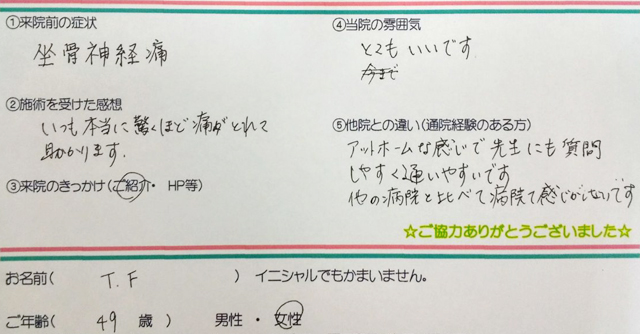 ①来院前の症状
坐骨神経痛
②施術を受けた感想
いつも本当に驚くほど痛みがとれて
助かります。
③来院のきっかけ(ご紹介・ HP等)
④当院の雰囲気
とてもいいです。
今まで
⑤他院との違い(通院経験のある方)
アットホームな感じで先生にも質問
しやすく通いやすいです
他の病院と比べて病院て感じがしないです
☆ご協力ありがとうございました☆
お名前( T.F ) イニシャルでもかまいません。
ご年齢( 49 歳 ) 男性 ・ 女性